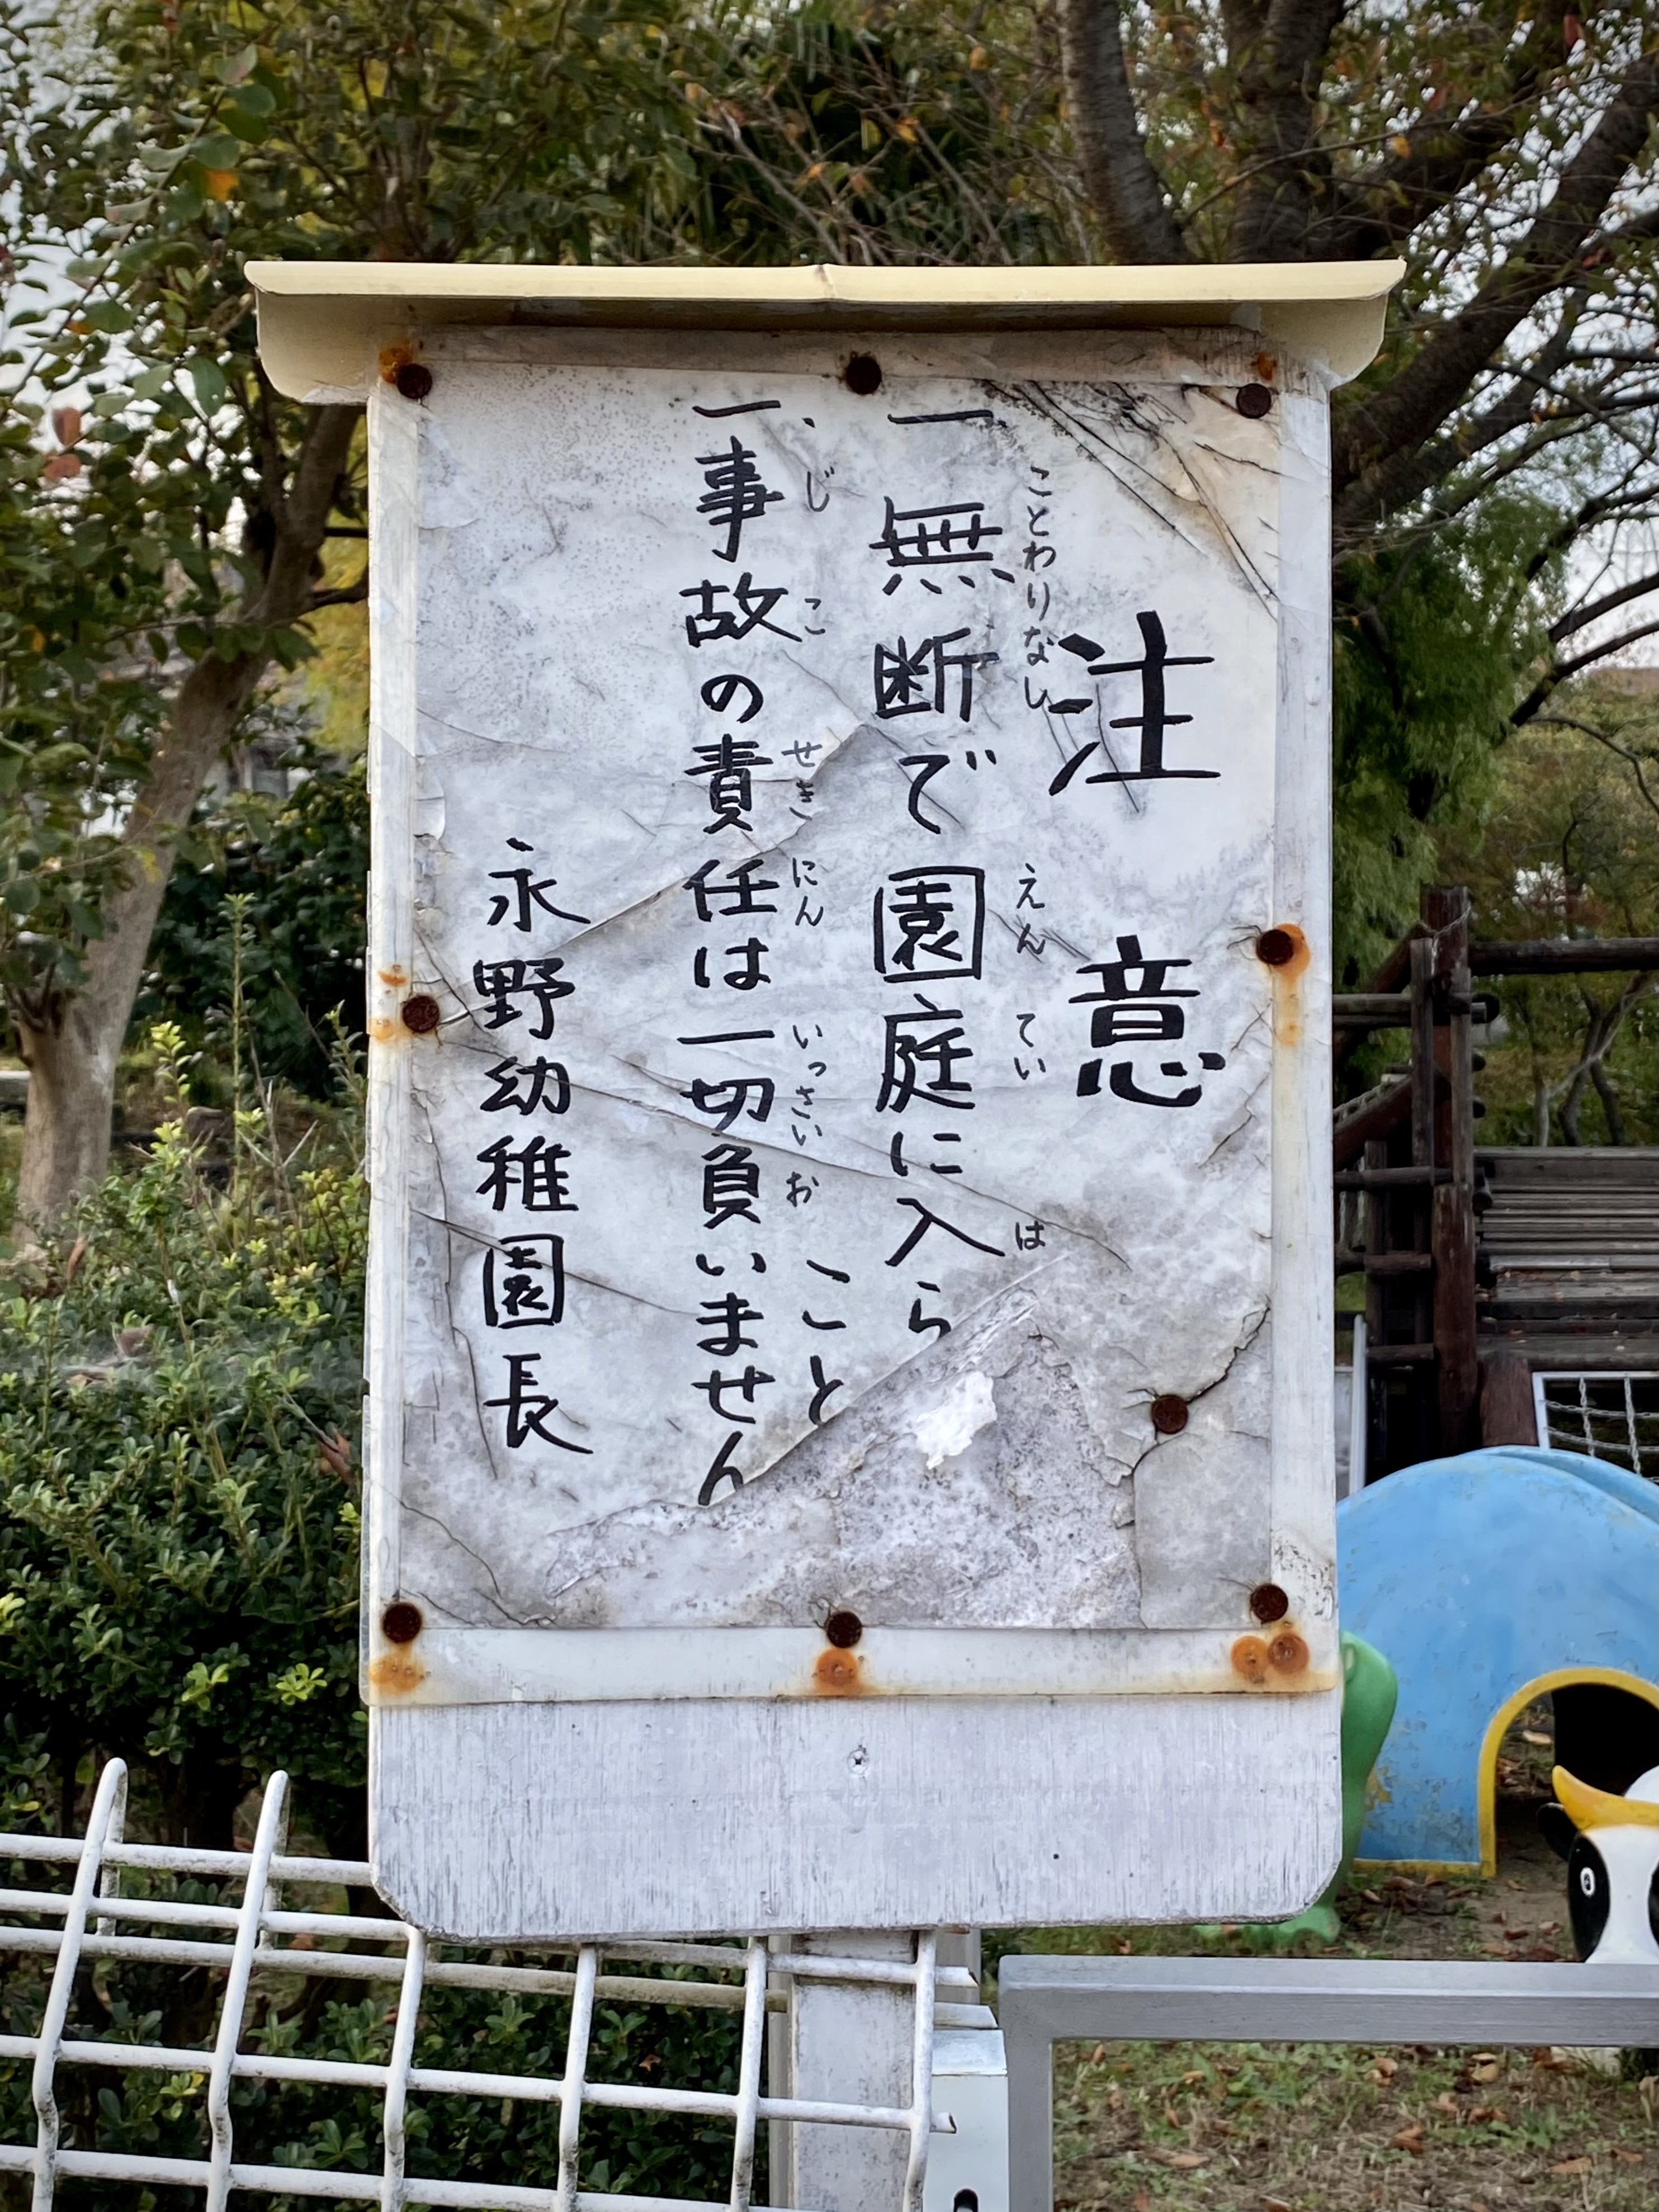 注意
一 無断で園庭に入ら
ことわりなし えんてい は
こと
一、事故の責任は一切負いません
じこ せきにん いっさい お
永野幼稚園長